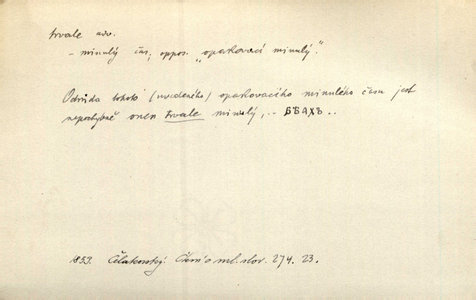 trvale adv.
– minulý čas, oppos. „opakovací minulý".
Odrůda tohoto (uvedeného) opakovacího minulého času jest
nepochybně onen trvale minulý, .. БѢАХЪ ..
1853. Čelakovský. Čtení o ml. slov. 274. 23.